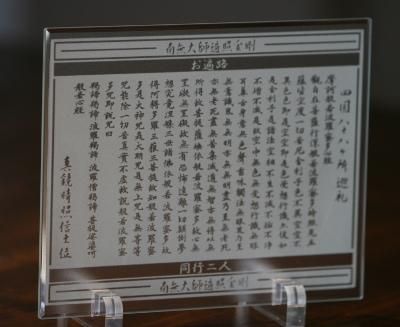 南無大師遍照金剛
お遍路
四国八十八ヶ所巡礼
摩訶般若波羅蜜多心経
観自在菩薩行深般若波羅蜜多時照見五
蘊皆空度一切苦厄舎利子色不異空空不
異色色即是空空即是色受想行識亦復如
是舎利子是諸法空相不生不滅不垢不浄
不増不減是故空中無色無受想行識無眼
耳鼻舌身意無色聲香味觸法無眼界乃至
無意識界無無明亦無無明盡乃至無老死
亦無老死盡無苦集滅道無智亦無得以無
所得故菩提薩埵依般若波羅蜜多故心無
罣礙無罣礙故無有恐怖遠離一切顛倒夢
想究竟涅槃三世諸佛依般若波羅蜜多故
得阿耨多羅三藐三菩提故知般若波羅蜜
多是大神咒是大明咒是無上咒是無等等
咒能除一切苦真實不虚故説般若波羅蜜
多咒即説咒曰
羯諦羯諦 波羅羯諦 波羅僧羯諦 菩提娑婆訶
般若心経
真鏡晴照信士位
同行二人
南無大師遍照金剛